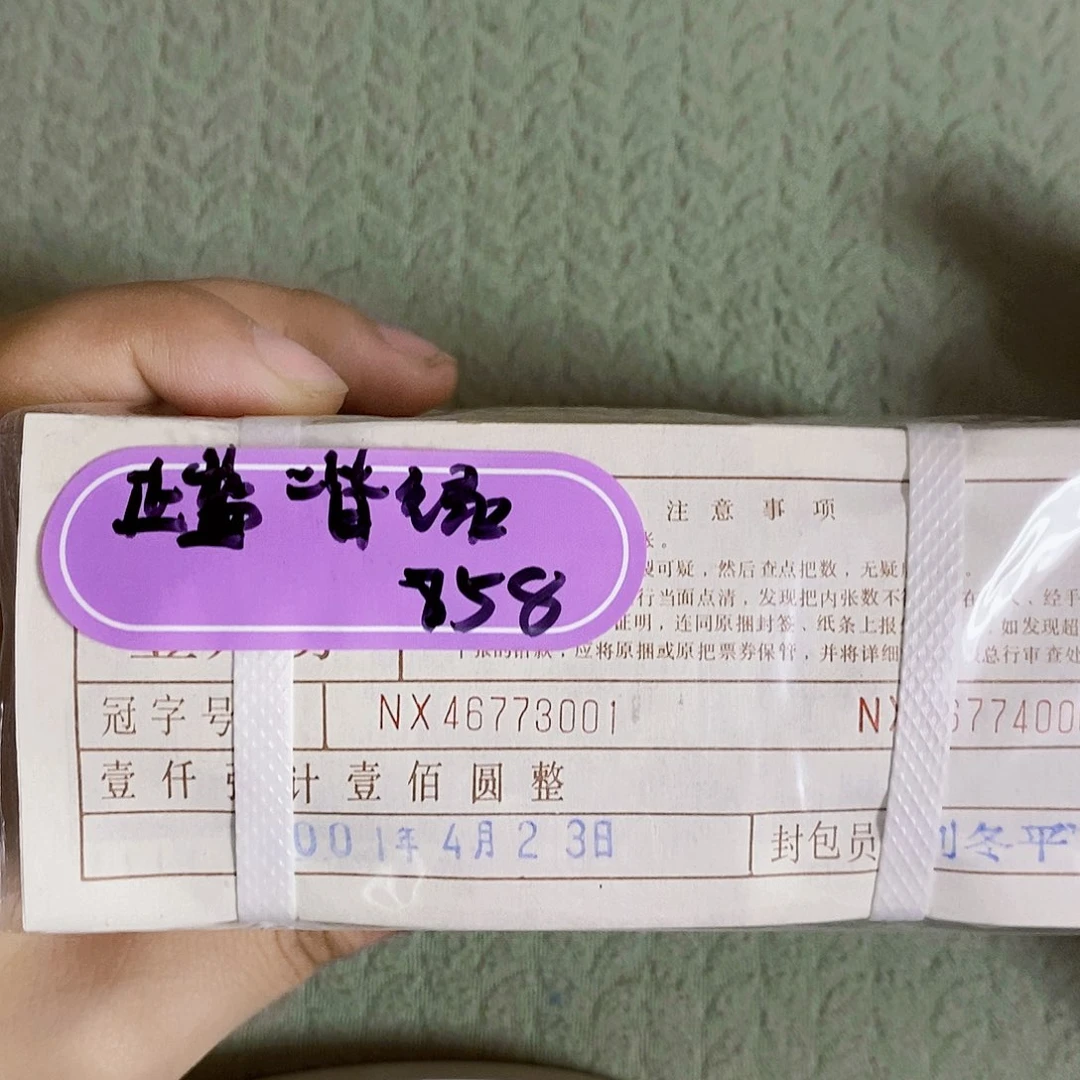 正常 普绿
858
注意事项
张。
裂可疑，然后查点把数，无疑
行当面点清，发现把内张数不
证明，连同原捆封签、纸条上报 如发现超
张的错款，应将原捆或原把票券保管，并将详细 总行审查处
冠字号 NX46773001 NX 677400
壹仟 计壹佰圆整
001年4月23日 封包员 刘冬平